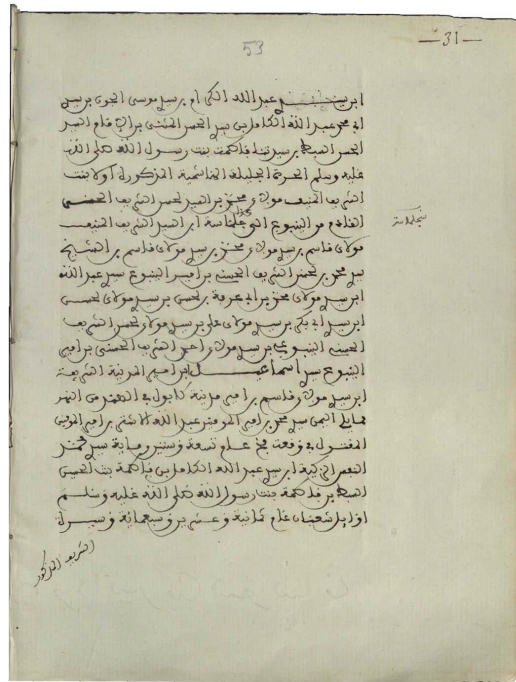 —31—
53
ابن سيدنا عبد الله الكامل بن سيد موسى الجون بن سيد
ابى محمد عبد الله الكامل بن سيد الحسن المثنى بن الامام السيد
الحسن السبط بن سيدتنا فاطمة بنت رسول الله صلى الله
عليه وسلم الحرة الجليلة الهاشمية المذكورة اولا بنت
الشريف المنيف مولاي محمد بن امير الحسن الشريف الحسني
القادم من الينبوع الى سجلماسة ابن السيد الشريف المنيف
مولاي قاسم بن سيد مولاي محمد بن سيد مولاي قاسم بن الشيخ
سيد محمد بن الحسن الشريف الحسني بن امير الينبوع سيد عبد الله
ابن سيد مولاي محمد بن ابى عرفة بن الحسن بن سيد مولاي الحسن
ابن سيد ابى بكر بن سيد مولاي علي بن سيد مولاي الحسن الشريف
الحسني الينبوعي بن سيد مولاي احمد الشريف الحسني بن امير
الينبوع سيد اسماعيل بن امير المدينة الشريفة
ابن سيد مولاي قاسم بن امير مدينة كابول في الهند من النهر
مما يلي اليمن سيد محمد بن امير المومنين عبد الله الاشتر بن امير المومنين
المقتول في وقعة فخ عام تسعة وستين ومائة سيد محمد
النفس الزكية ابن سيد عبد الله الكامل بن فاطمة بنت الحسين
السبط بن فاطمة بنت رسول الله صلى الله عليه وسلم
اوايل شعبان عام ثمانية وعشرين وسبعمائة وسيرة
الشريف المذكور
سجلماسة